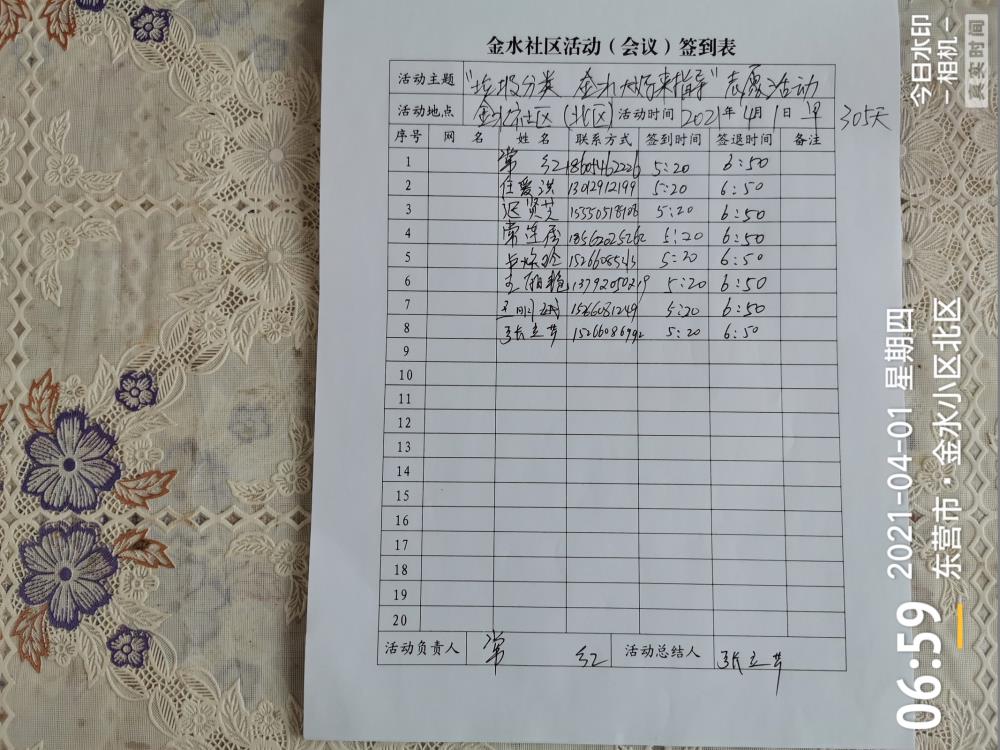 金水社区活动（会议）签到表
活动主题 "垃圾分类 金水大好来指导"志愿活动
活动地点 金水社区（北区） 活动时间 2021年4月1日 早 305天
序号 网 名 姓 名 联系方式 签到时间 签退时间 备注
1 常 红 18605462226 5:20 6:50
2 任爱洪 13012912199 5:20 6:50
3 迟贤芝 5:20 6:50
4 常莲 18562025262 5:20 6:50
5 5:20 6:50
6 王 13792050219 5:20 6:50
7 王 15266081249 5:20 6:50
8 张立芹 15266086992 5:20 6:50
9
10
11
12
13
14
15
16
17
18
19
20
活动负责人 常 红 活动总结人 张立芹
今日水印
－相机－
真实时间
06:59 2021-04-01 星期四
东营市·金水小区北区